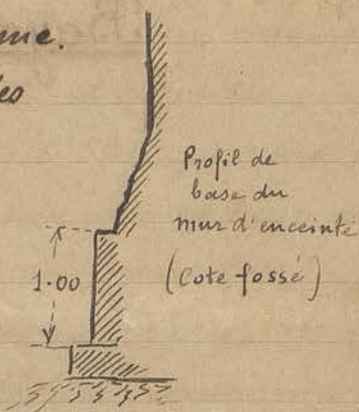 Profil de
base du
mur d'enceinte
(Cote fossé)
1.00